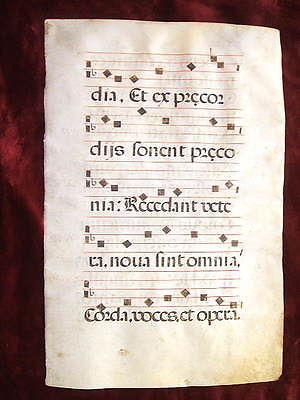 dia. Et ex pręcor
dijs sonent pręco
nia: Recedant vete
ra, noua sint omnia,
Corda, voces, et opera.